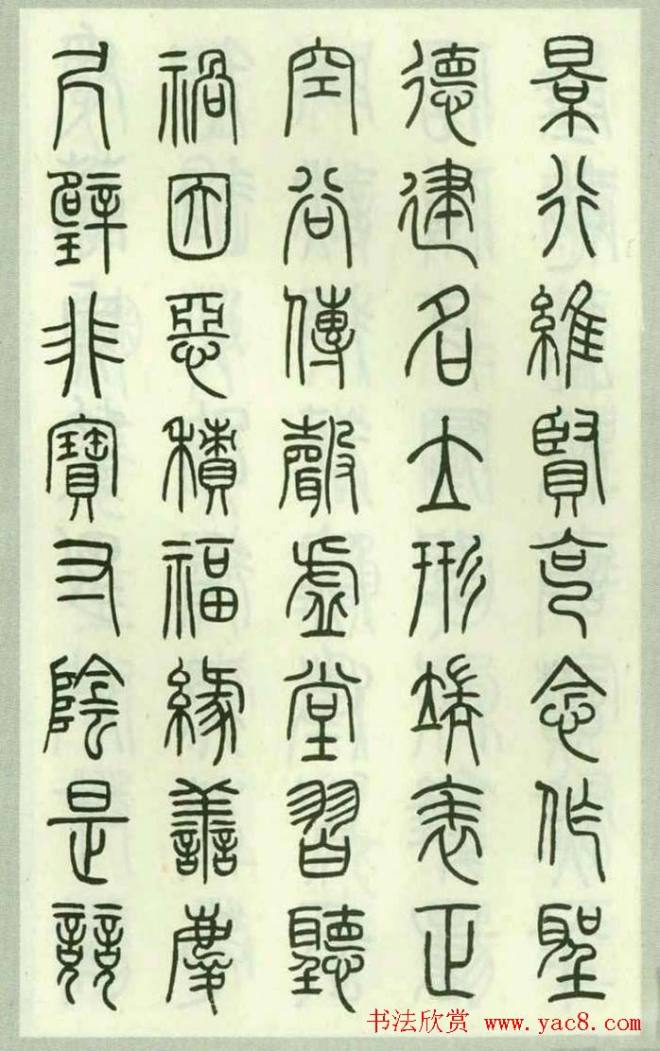 景行維賢克念作聖
德建名立形端表正
空谷傳聲虛堂習聽
禍因惡積福緣善慶
尺璧非寶寸陰是競
书法欣赏 www.yac8.com